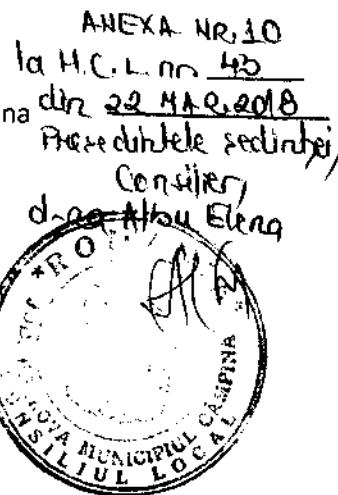 ANEXA NR. 10
la H.C.L. nr. 43
na din 22 MAR. 2018
Președintele ședinței,
Consilier,
d-na Albu Elena
RO
MUNICIPIUL CÂMPINA
CONSILIUL LOCAL